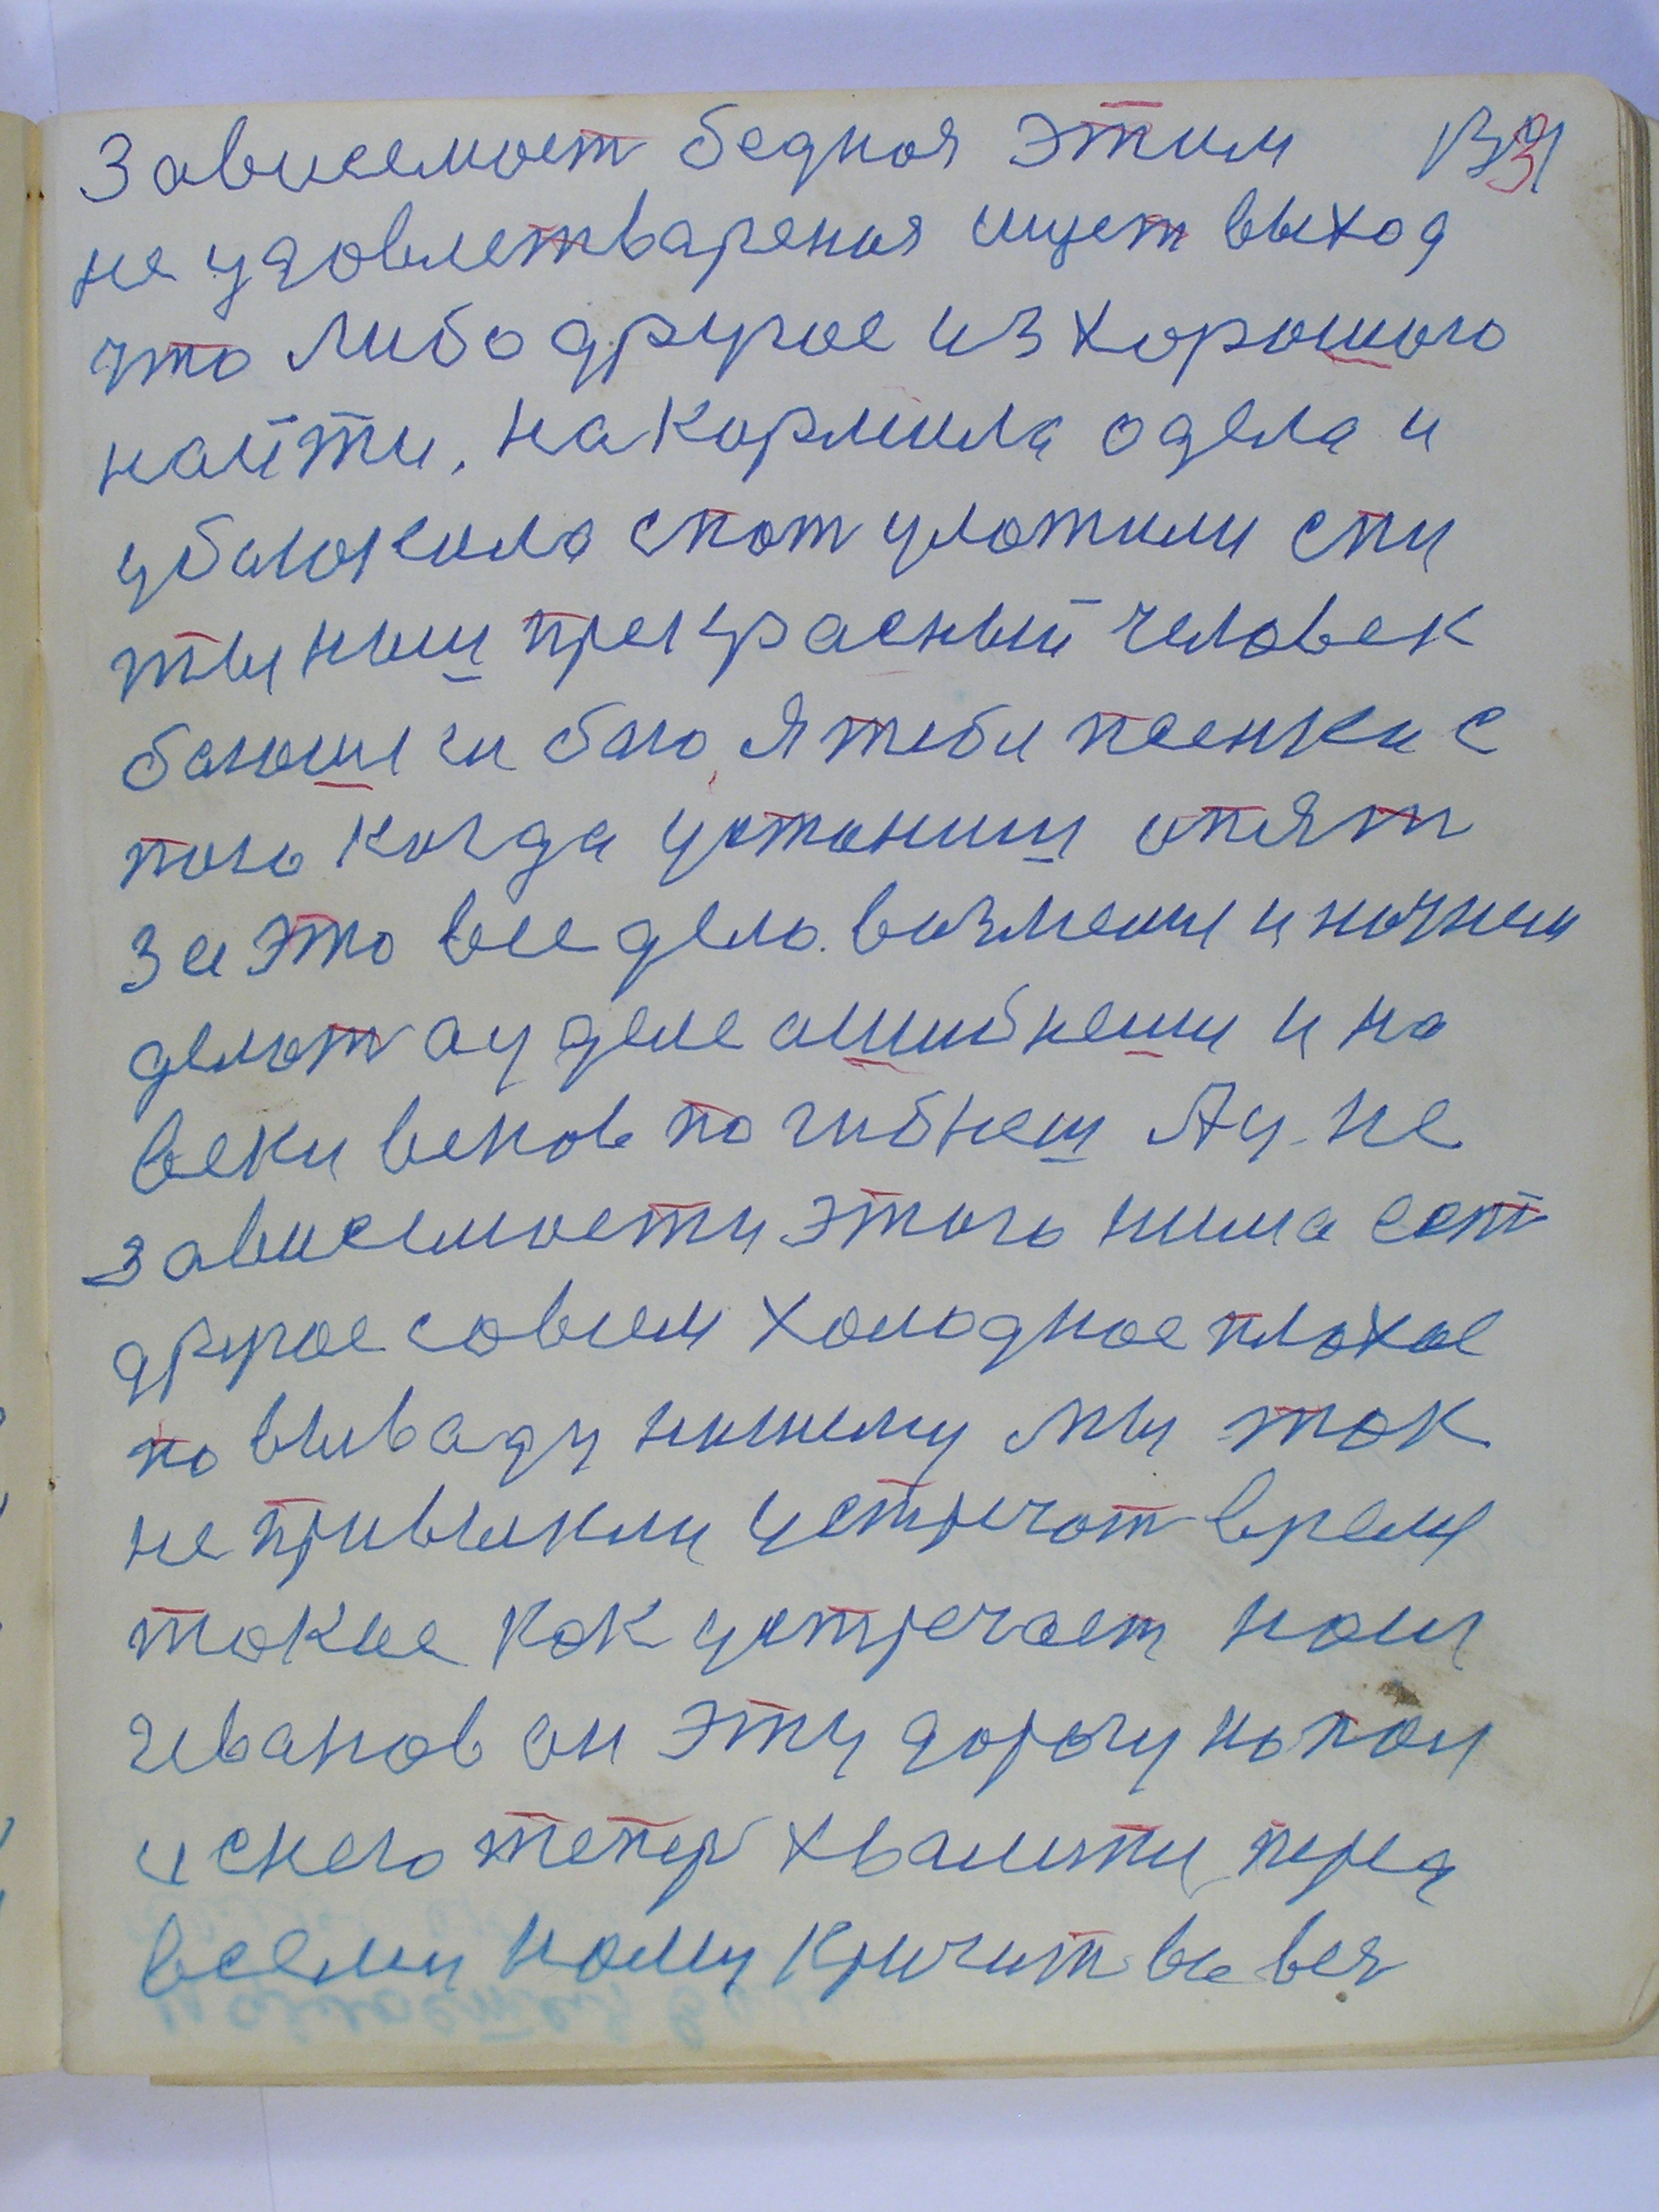 Зависемост бедная этим
не удовлетвареная ищет выход
что либо другое из хорошого
найти, накормила одела и
убаюкала спат уложили спи
ты наш прекрасный человек
баюши ги баю, я тебя песенки с
пою когда устаниш опят
за это все дело возмеш и начнеш
делат а у деле ашибнеш и на
веки веков погибнеш А у не
зависемости этого нима ест
другое совсем холодное плохое
по вываду нашему мы так
не привыкли устречат время
такие как устречает наш
Иванов он эту дорогу нашол
и снего тепер хвалити перед
всеми нами кричит во вся